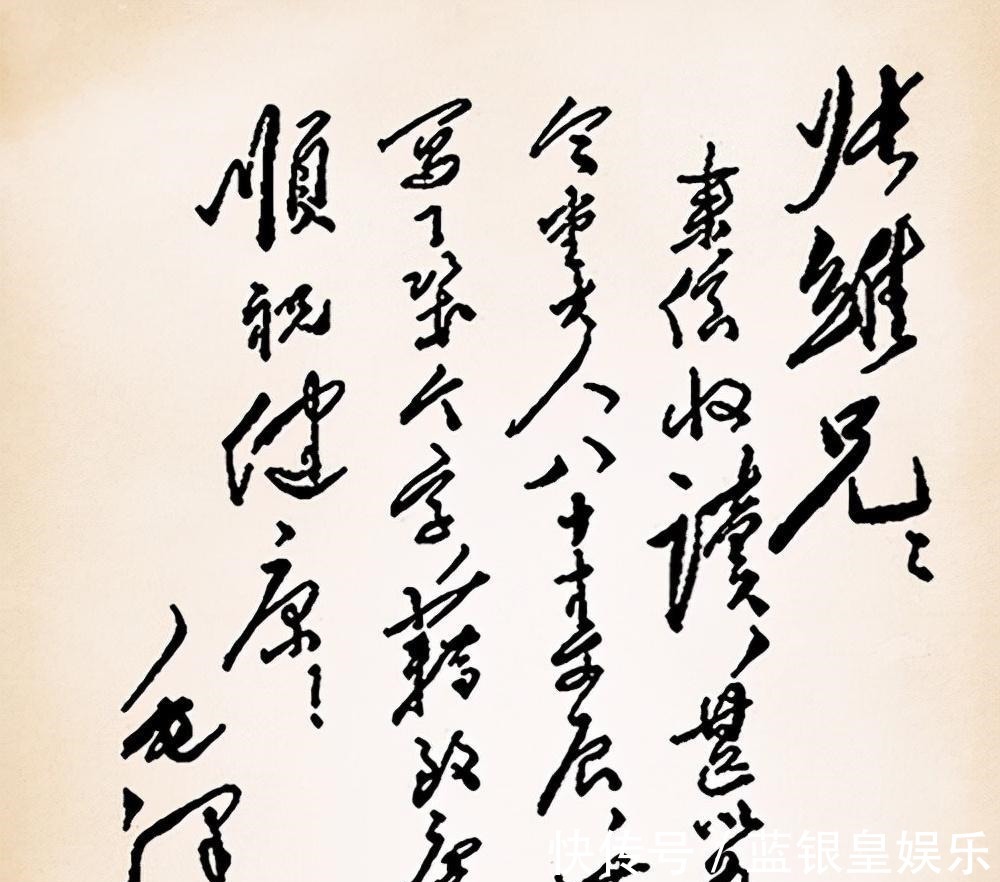 张维兄：
来信收读，甚以为
令堂大人八十寿辰，
写了几个字，藉致庆
顺祝健康！
毛泽
快传号 / 蓝银皇娱乐